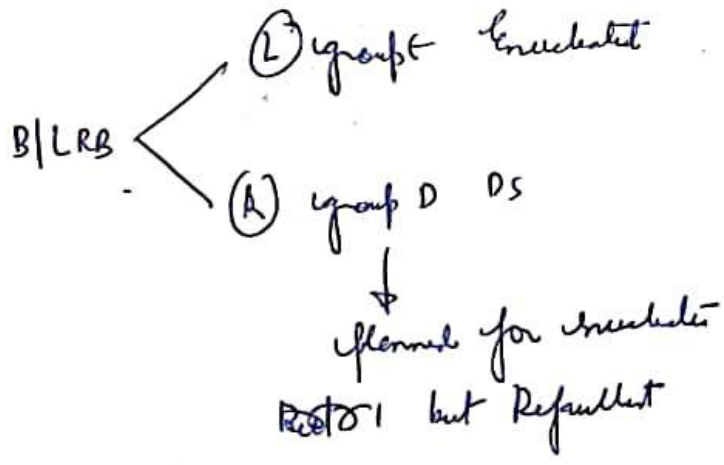 (L) group E Enucleated
B/LRB
(R) group D DS
planned for enucleation
but Defaulted